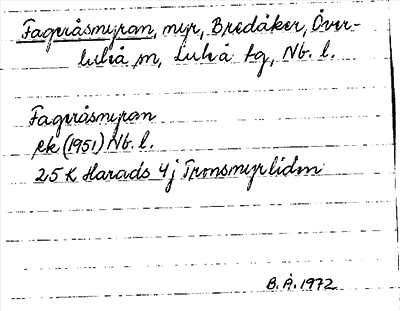 Fageråsmyran, myr, Bredåker, Över-
luleå sn, Luleå tg, Nb. l.
Fageråsmyran
ek (1951) Nb. l.
25 K Harads 4j Tronsmyrliden
B. Å. 1972